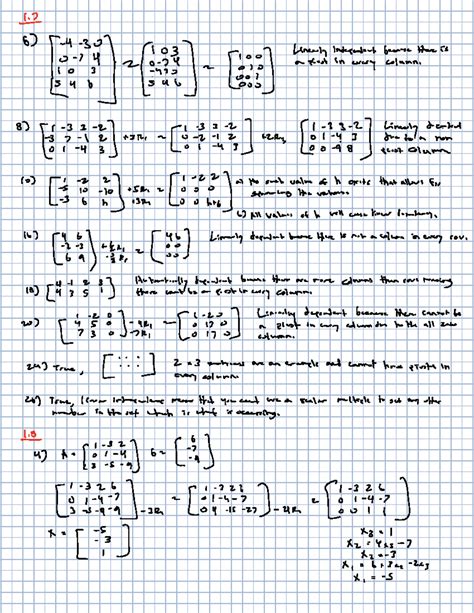 1.7
6) [-4 -3 0 / 0 -1 4 / 1 0 3 / 5 4 6] ~ [1 0 3 / 0 -1 4 / -4 -3 0 / 5 4 6] ~ [1 0 0 / 0 1 0 / 0 0 1 / 0 0 0] Linearly independent because there is
a pivot in every column.
8) [1 -3 3 -2 / -3 7 -1 2 / 0 1 -4 3] +3R1 ~ [1 -3 3 -2 / 0 -2 -1 2 / 0 1 -4 3] +2R2 [1 -3 3 -2 / 0 1 -4 3 / 0 0 -9 8] Linearly
due to a non
pivot column
10) [1 -2 2 / -5 10 -10 / -3 6 h] +5R1 +3R1 ~ [1 -2 2 / 0 0 0 / 0 0 h+6] a) No such value of h exists that allows for
b) All values of h
16) [4 6 / -2 -3 / 6 9] ~ [4 6 / 0 0 / 0 0] Linearly dependent because there is not a column in every row.
18) [4 -1 2 3 / 4 3 5 1] Automatically dependent because there are more columns than rows meaning
there can't be a pivot in every column.
20) [1 -2 0 / 4 5 0 / 7 3 0] ~ [1 -2 0 / 0 17 0 / 0 17 0] Linearly dependent because there cannot be
a pivot in every column due to the all zero
column.
24) True, [⋮⋮⋮] 2 × 3 matrices are an example and cannot have pivots in
every column.
28) True, linear independence means that you can't use a scalar multiple to get any other
number in the set which is what is occurring.
1.8
4) A = [1 -3 2 / 0 1 -4 / 3 -5 -9] b = [6 / -7 / -9]
[1 -3 2 6 / 0 1 -4 -7 / 3 -5 -9 -9] -3R1 ~ [1 -3 2 6 / 0 1 -4 -7 / 0 4 -15 -27] -4R2 ~ [1 -3 2 6 / 0 1 -4 -7 / 0 0 1 1]
x = [-5 / -3 / 1]
x3 = 1
x2 = 4x3 - 7
x2 = -3
x1 = 6 + 3x2 - 2x3
x1 = -5